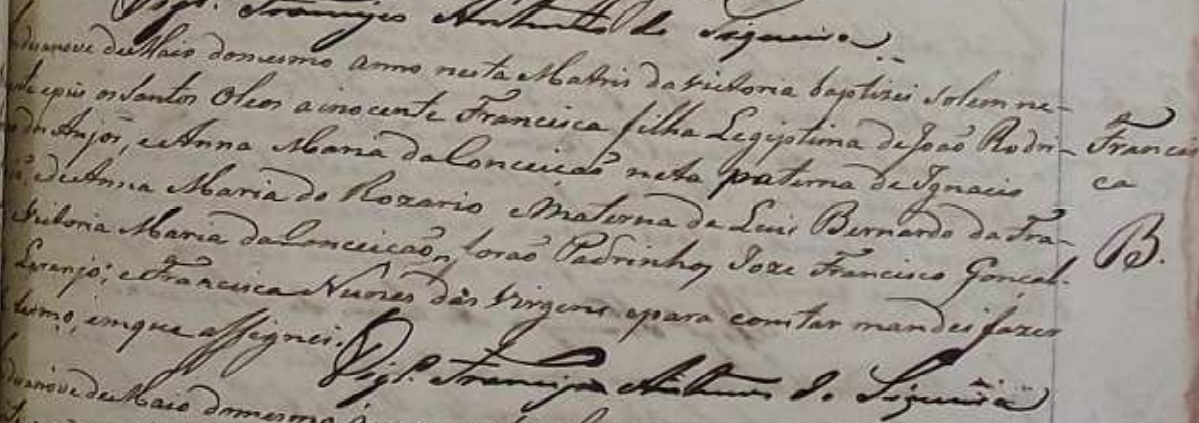 Vigr. Francisco Antunes de Siqueira
dusanove de Maio domesmo anno nesta Matris da Victoria baptizei solemne-
epuis os Santos Oleos a inocente Francisca filha Legiptima de João Rodri-
dos Anjos, e Anna Maria da Conceição neta paterna de Ignacio
de Anna Maria do Rozario e Materna de Luis Bernardo da Fra-
Victoria Maria da Conceição, forão Padrinhos Joze Francisco Gonçal-
Laranjo; e Francisca Nunes das Virgens epara constar mandei fazer
termo, emque assignei.
Vigr. Francisco Antunes de Siqueira
Francis
ca
B.
dusanove de Maio domesmo